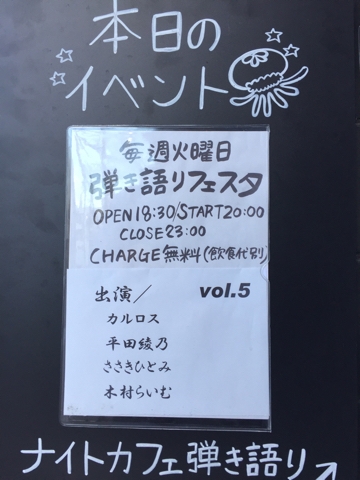 本日の
イベント
毎週火曜日
弾き語りフェスタ
OPEN18:30/START20:00
CLOSE23:00
CHARGE無料(飲食代別)
出演/ vol.5
カルロス
平田綾乃
ささきひとみ
木村らいむ
ナイトカフェ弾き語り↗